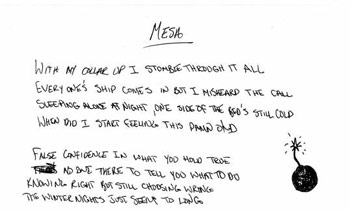 MESA
WITH MY COLLAR UP I STUMBLE THROUGH IT ALL
EVERYONE'S SHIP COMES IN BUT I MISHEARD THE CALL
SLEEPING ALONE AT NIGHT, ONE SIDE OF THE BED'S STILL COLD
WHEN DID I START FEELING THIS DAMN OLD
FALSE CONFIDENCE IN WHAT YOU HOLD TRUE
NO ONE THERE TO TELL YOU WHAT TO DO
KNOWING RIGHT BUT STILL CHOOSING WRONG
THE WINTER NIGHTS JUST SEEM TO LONG